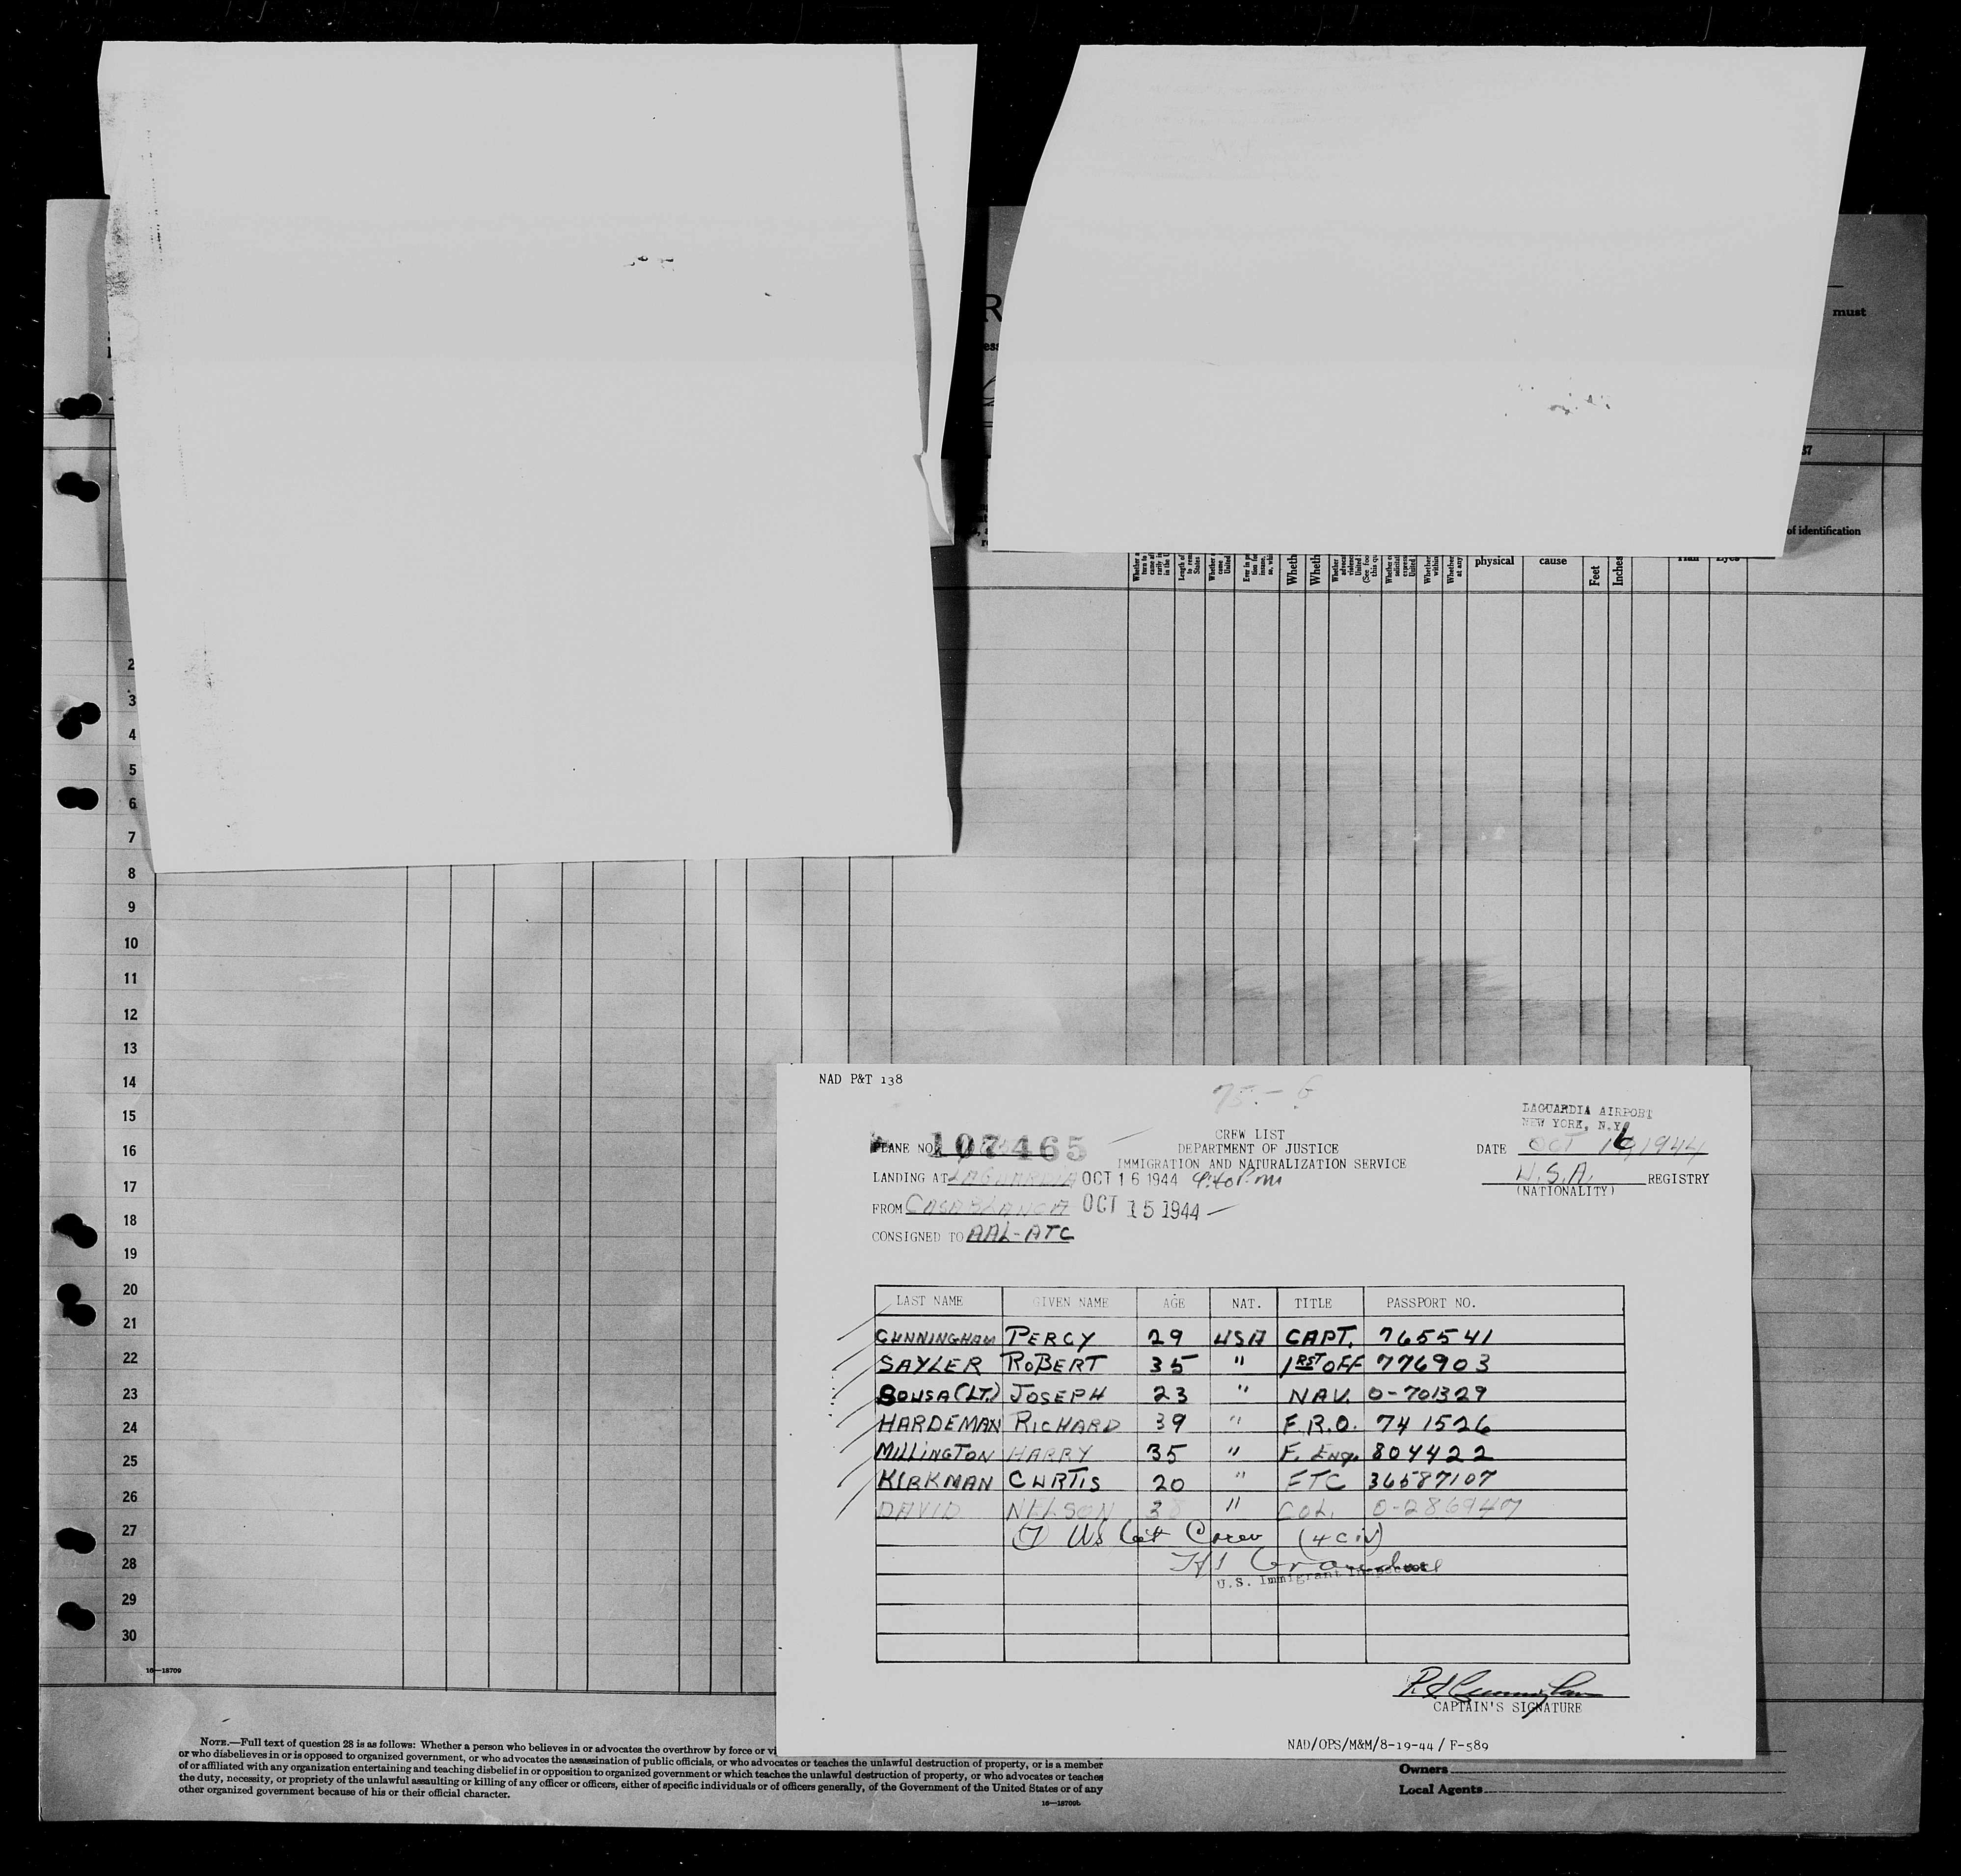 R
must
ess
37
of identification
physical
cause
Feet
Inches
Hair
Eyes
2
3
4
5
6
7
8
9
10
11
12
13
14
15
16
17
18
19
20
21
22
23
24
25
26
27
28
29
30
16—18709
NAD P&T 138
75 - 6
LAGUARDIA AIRPORT
NEW YORK, N.Y.
CREW LIST
PLANE NO. 107465
DEPARTMENT OF JUSTICE
DATE OCT 16, 1944
IMMIGRATION AND NATURALIZATION SERVICE
LANDING AT LAGUARDIA OCT 16 1944
U.S.A. REGISTRY
(NATIONALITY)
FROM CASABLANCA OCT 15 1944
CONSIGNED TO AAL-ATC
LAST NAME GIVEN NAME AGE NAT. TITLE PASSPORT NO.
CUNNINGHAM PERCY 29 USA CAPT. 765541
SAYLER ROBERT 35 " 1RST OFF 776903
SOUSA (LT.) JOSEPH 23 " NAV. O-701329
HARDEMAN RICHARD 39 " F.R.O. 741526
MILLINGTON HARRY 35 " F. Eng. 804422
KIRKMAN CURTIS 20 " FTC 36587107
DAVID NELSON 38 " COL. O-286947
(7) US Cit Crew (4 civ)
U.S. Immigrant Inspector
CAPTAIN'S SIGNATURE
NAD/OPS/M&M/8-19-44 / F-589
NOTE.—Full text of question 28 is as follows: Whether a person who believes in or advocates the overthrow by force or
or who disbelieves in or is opposed to organized government, or who advocates the assassination of public officials, or who advocates or teaches the unlawful destruction of property, or is a member
of or affiliated with any organization entertaining and teaching disbelief in or opposition to organized government or which teaches the unlawful destruction of property, or who advocates or teaches
the duty, necessity, or propriety of the unlawful assaulting or killing of any officer or officers, either of specific individuals or of officers generally, of the Government of the United States or of any
other organized government because of his or their official character.
16—18709b
Owners
Local Agents